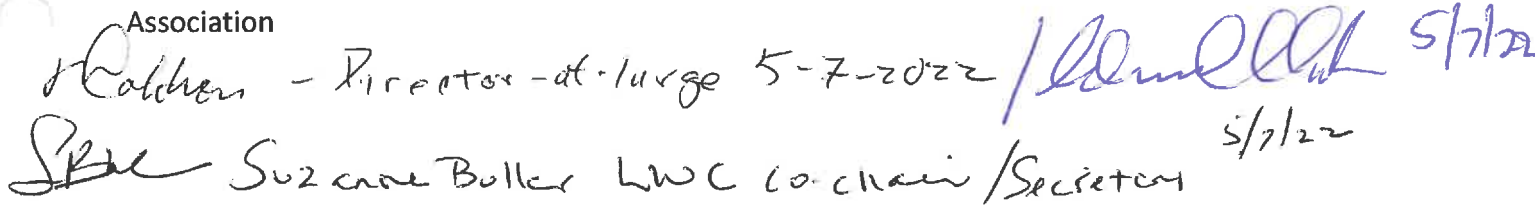 Association
- Director-at-large 5-7-2022 / 5/7/22
Suzanne Buller LWC co-chair/Secretary 5/7/22